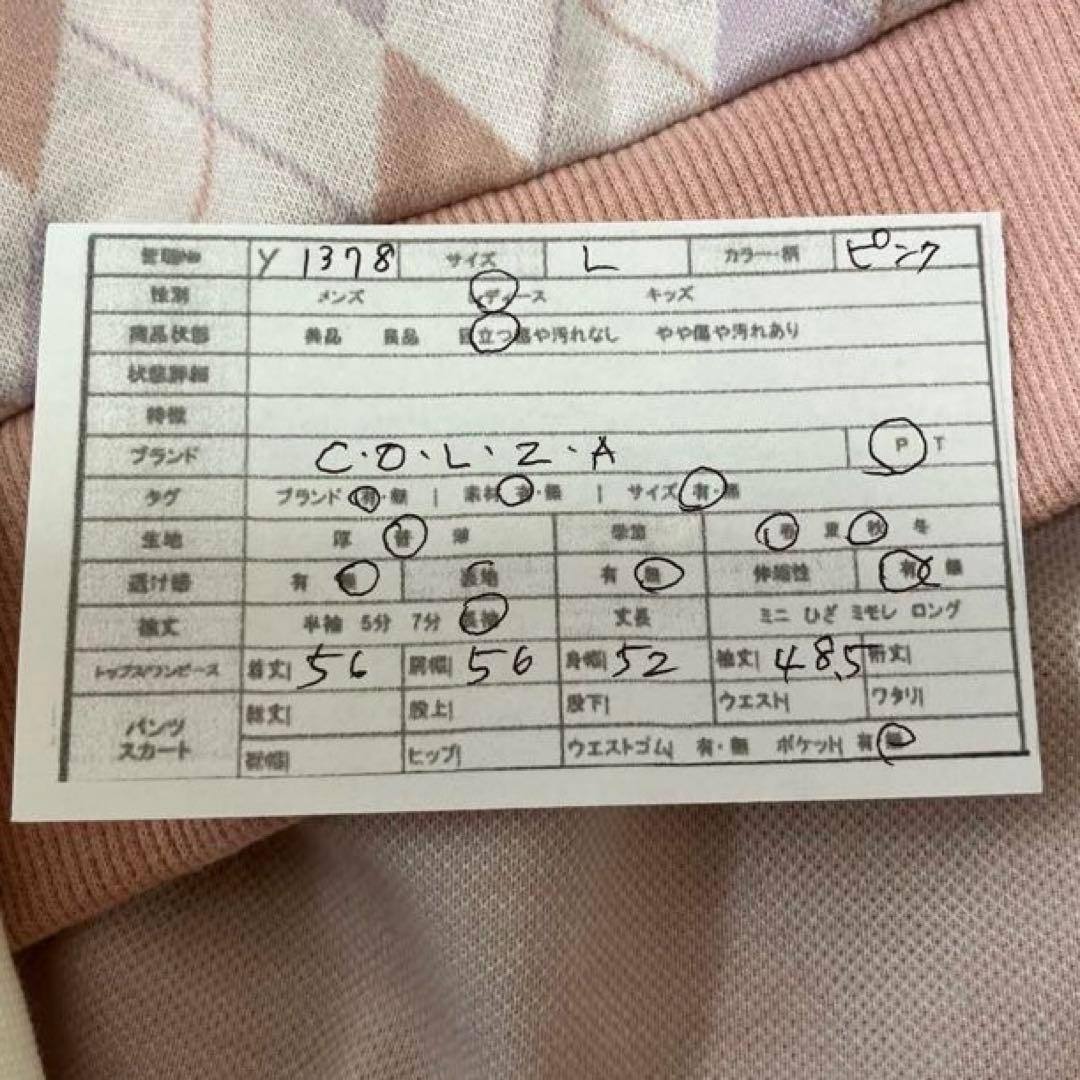 管理No Y 1378 サイズ L カラー・柄 ピンク
性別 メンズ レディース キッズ
商品状態 美品 良品 目立つ傷や汚れなし やや傷や汚れあり
状態詳細
特徴
ブランド C・O・L・Z・A P T
タグ ブランド 有・無 | 素材 有・無 | サイズ 有・無
生地 厚 普 薄 季節 春 夏 秋 冬
透け感 有 無 裏地 有 無 伸縮性 有 無
袖丈 半袖 5分 7分 長袖 丈長 ミニ ひざ ミモレ ロング
トップス/ワンピース 着丈| 56 肩幅| 56 身幅| 52 袖丈| 48.5 裄丈|
パンツ スカート 総丈| 股上| 股下| ウエスト| ワタリ|
裾幅| ヒップ| ウエストゴム| 有・無 ポケット| 有 無